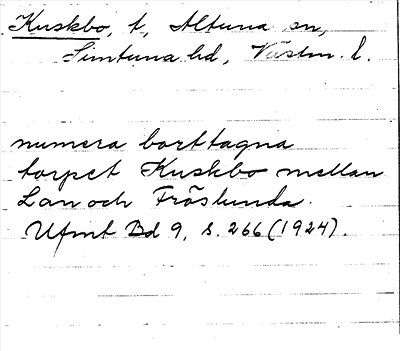 Kuskbo, t, Altuna sn,
Simtuna hd, Västm. l.
numera borttagna
torpet Kuskbo mellan
Lan och Fröslunda.
Ufmt Bd 9, s. 266 (1924).